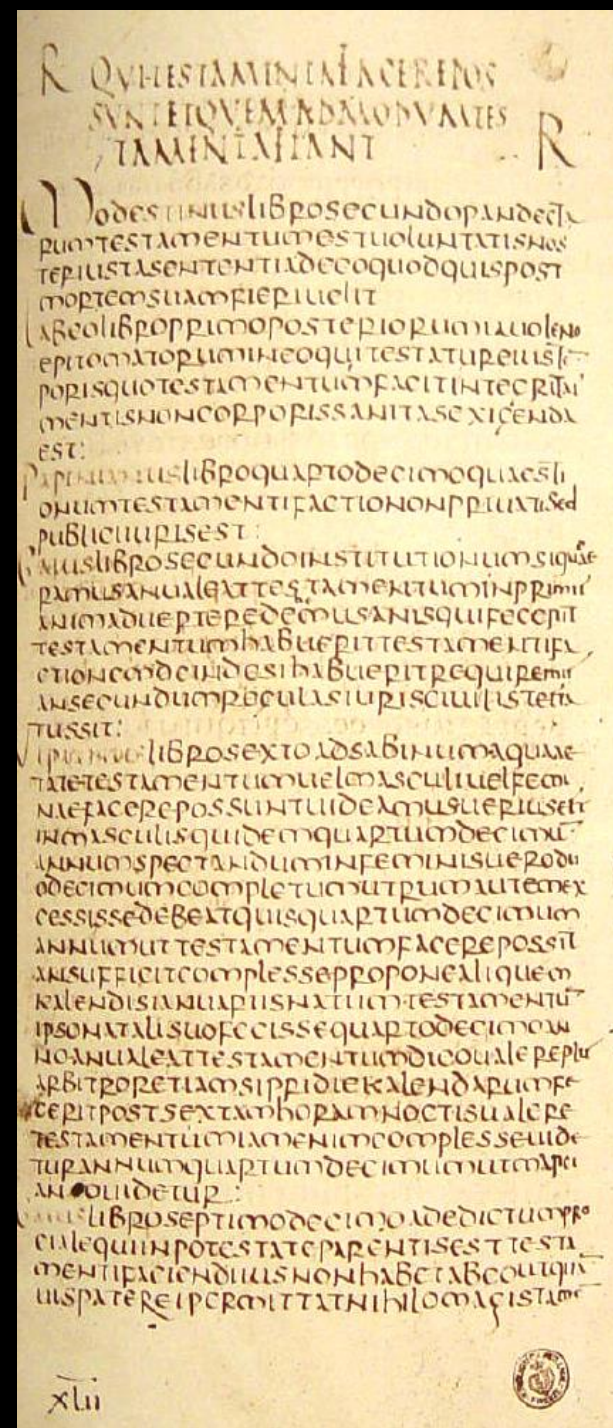 R QUI TESTAMENTA FACERE POS
SUNT ET QUEMADMODUM TES
TAMENTA FIANT R
MODESTINUSLIBROSECUNDOPANDECTA
RUMTESTAMENTUMESTUOLUNTATISNOS
TRAEIUSTASENTENTIADEEOQUODQUISPOST
MORTEMSUAMFIERIUELIT
LABEOLIBROPRIMOPOSTERIORUMIAUOLENO
EPITOMATORUMINEOQUITESTATUREIUSTE
PORISQUOTESTAMENTUMFACITINTEGRITAS
MENTISNONCORPORISSANITASEXIGENDA
EST:
PAPINIANUSLIBROQUARTODECIMOQUAESTI
ONUMTESTAMENTIFACTIONONPRIUATISED
PUBLICIIURISEST:
GAIUSLIBROSECUNDOINSTITUTIONUMSIQUAE
RAMUSANUALEATTESTAMENTUMINPRIMIS
ANIMADUERTEREDEBEMUSANISQUIFECERIT
TESTAMENTUMHABUERITTESTAMENTIFA
CTIONEMDEINDESIHABUERITREQUIREMUS
ANSECUNDUMREGULASIURISCIUILISTESTA
TUSSIT:
ULPIANUSLIBROSEXTOADSABINUMAQUAAE
TATETESTAMENTUMUELMASCULIUELFEMI
NAEFACEREPOSSUNTUIDEAMUSUERIUSEST
INMASCULISQUIDEMQUARTUMDECIMU̅
ANNUMSPECTANDUMINFEMINISUERODU
ODECIMUMCOMPLETUMUTRUMAUTEMEX
CESSISSEDEBEATQUISQUARTUMDECIMUM
ANNUMUTTESTAMENTUMFACEREPOSSIT
ANSUFFICITCOMPLESSEPROPONEALIQUEM
KALENDISIANUARIISNATUMTESTAMENTU̅
IPSONATALISUOFECISSEQUARTODECIMOAN
NOANUALEATTESTAMENTUMDICOUALEREPLUS
ARBITRORETIAMSIPRIDIEKALENDARUMFE
CERITPOSTSEXTAMHORAMNOCTISUALERE
TESTAMENTUMIAMENIMCOMPLESSEUIDE
TURANNUMQUARTUMDECIMUMUTMARCI
ANOUIDETUR:
GAIUSLIBROSEPTIMODECIMOADEDICTUMPRO
CIALEQUIINPOTESTATEPARENTISESTTESTA
MENTIFACIENDIIUSNONHABETADEOUTQUA̅
UISPATEREIPERMITTATNIHILOMAGISTAME̅
XLII